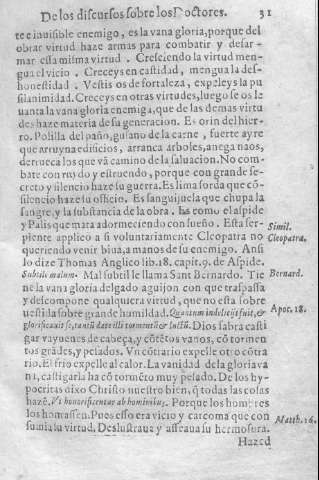 De los discursos sobre los Doctores. 31
te e inuisible enemigo, es la vana gloria, porque del
obrar virtud haze armas para combatir y desar-
mar essa misma virtud. Cresciendo la virtud men-
gua el vicio. Creceys en castidad, mengua la des-
honestidad. Vestis os de fortaleza, expeleys la pu
silanimidad. Creceys en otras virtudes, luego se os le
uanta la vana gloria enemiga, que de las demas virtu
des haze materia de su generacion. Es orin del hier-
ro. Polilla del paño, gusano de la carne, fuerte ayre
que arruyna edificios, arranca arboles, anega naos,
derrueca los que vã camino de la saluacion. No com-
bate con ruydo y estruendo, porque con grande se-
creto y silencio haze su guerra. Es lima sorda que cõ
silencio haze su officio. Es sanguijuela que chupa la
sangre, y la substancia de la obra. Es como el aspide
y Palis que mata adormeciendo con sueño. Esta ser-
piente applico a si voluntariamente Cleopatra no
queriendo venir biua, a manos de su enemigo. Ansi
lo dize Thomas Anglico lib. 18. capit. 9. de Aspide.
Simil.
Cleopatra.
Subtile malum. Mal subtil le llama Sant Bernardo. Tie
ne la vana gloria delgado aguijon con que traspassa
y descompone qualquiera virtud, que no esta sobre
uestida sobre grande humildad. Quantum in delicijs fuit, &
glorificauit se, tantũ date illi tormentũ & luctũ. Dios sabra casti
Bernard.
Apoc. 18.
gar vayuenes de cabeça, y cõtẽtos vanos, cõ tormen
tos grãdes, y pesados. Vn cõtrario expelle otro cõtra
rio. El frio expelle al calor. La vanidad dela gloria va
na, castigarla ha cõ tormẽto muy pesado. De los hy-
pocritas dixo Christo nuestro bien, q̃ todas las cosas
hazẽ, Vt honorificentur ab hominibus. Porque los hombres
los honrassen. Pues esso era vicio y carcoma que con
sumia su virtud. Deslustraua y affeaua su hermosura.
Matth. 16.
Hazed